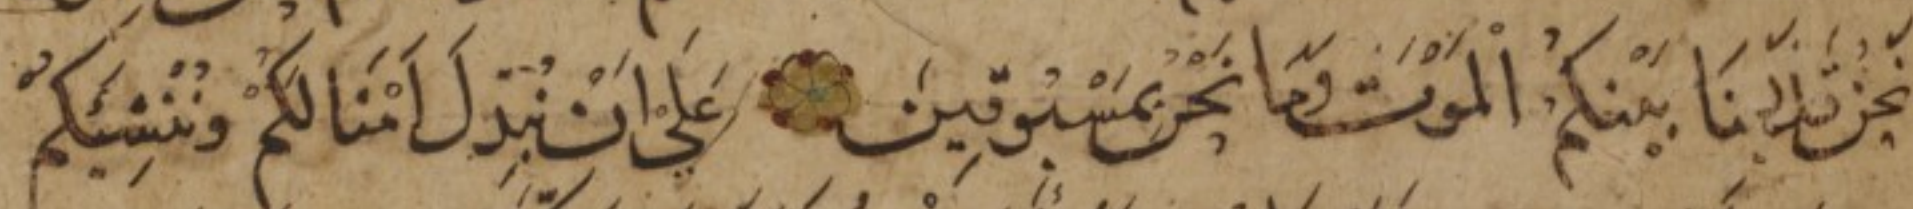 نَحْنُ قَدَّرْنَا بَيْنَكُمُ الْمَوْتَ وَمَا نَحْنُ بِمَسْبُوقِينَ عَلَىٰ اَنْ نُبَدِّلَ اَمْثَالَكُمْ وَنُنْشِئَكُمْ